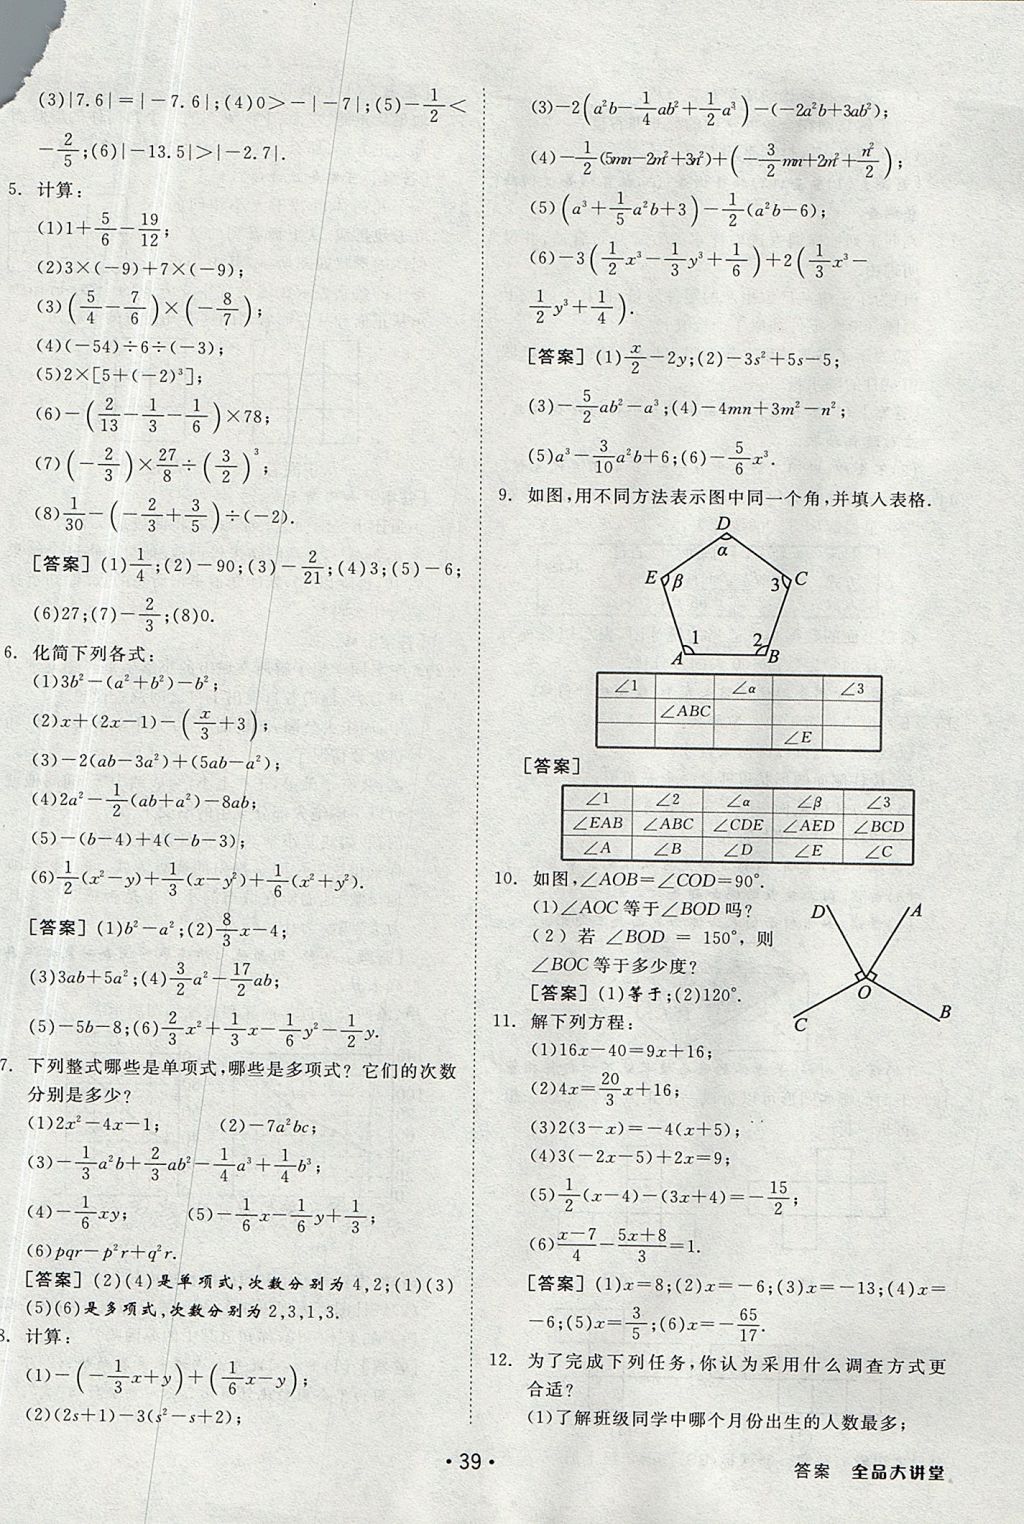 (3)|7.6|=|-7.6|;(4)0>-|-7|;(5)-1/2<
-2/5;(6)|-13.5|>|-2.7|.
5. 计算:
(1)1+5/6-19/12;
(2)3×(-9)+7×(-9);
(3)(5/4-7/6)×(-8/7);
(4)(-54)÷6÷(-3);
(5)2×[5+(-2)³];
(6)-(2/13-1/3-1/6)×78;
(7)(-2/3)×27/8÷(3/2)³;
(8)1/30-(-2/3+3/5)÷(-2).
[答案](1)1/4;(2)-90;(3)-2/21;(4)3;(5)-6;
(6)27;(7)-2/3;(8)0.
6. 化简下列各式:
(1)3b²-(a²+b²)-b²;
(2)x+(2x-1)-(x/3+3);
(3)-2(ab-3a²)+(5ab-a²);
(4)2a²-1/2(ab+a²)-8ab;
(5)-(b-4)+4(-b-3);
(6)1/2(x²-y)+1/3(x-y²)+1/6(x²+y²).
[答案](1)b²-a²;(2)8/3x-4;
(3)3ab+5a²;(4)3/2a²-17/2ab;
(5)-5b-8;(6)2/3x²+1/3x-1/6y²-1/2y.
7. 下列整式哪些是单项式,哪些是多项式? 它们的次数
分别是多少?
(1)2x²-4x-1; (2)-7a²bc;
(3)-1/3a²b+2/3ab²-1/4a³+1/4b³;
(4)-1/6xy; (5)-1/6x-1/6y+1/3;
(6)pqr-p²r+q²r.
[答案](2)(4)是单项式,次数分别为4,2;(1)(3)
(5)(6)是多项式,次数分别为2,3,1,3.
8. 计算:
(1)-(-1/3x+y)+(1/6x-y);
(2)(2s+1)-3(s²-s+2);
(3)-2(a²b-1/4ab²+1/2a³)-(-2a²b+3ab²);
(4)-1/2(5mn-2m²+3n²)+(-3/2mn+2m²+n²/2);
(5)(a³+1/5a²b+3)-1/2(a²b-6);
(6)-3(1/2x³-1/3y³+1/6)+2(1/3x³-
1/2y³+1/4).
[答案](1)x/2-2y;(2)-3s²+5s-5;
(3)-5/2ab²-a³;(4)-4mn+3m²-n²;
(5)a³-3/10a²b+6;(6)-5/6x³.
9. 如图,用不同方法表示图中同一个角,并填入表格.
D
α
E β 3 C
1 2
A B
∠1 ∠α ∠3
∠ABC
∠E
[答案]
∠1 ∠2 ∠α ∠β ∠3
∠EAB ∠ABC ∠CDE ∠AED ∠BCD
∠A ∠B ∠D ∠E ∠C
10. 如图,∠AOB=∠COD=90°.
(1)∠AOC等于∠BOD吗?
(2)若 ∠BOD = 150°,则
∠BOC等于多少度?
[答案](1)等于;(2)120°.
D A
O
C B
11. 解下列方程:
(1)16x-40=9x+16;
(2)4x=20/3x+16;
(3)2(3-x)=-4(x+5);
(4)3(-2x-5)+2x=9;
(5)1/2(x-4)-(3x+4)=-15/2;
(6)x-7/4-5x+8/3=1.
[答案](1)x=8;(2)x=-6;(3)x=-13;(4)x=
-6;(5)x=3/5;(6)x=-65/17.
12. 为了完成下列任务,你认为采用什么调查方式更
合适?
(1)了解班级同学中哪个月份出生的人数最多;
·39·
答案 全品大讲堂